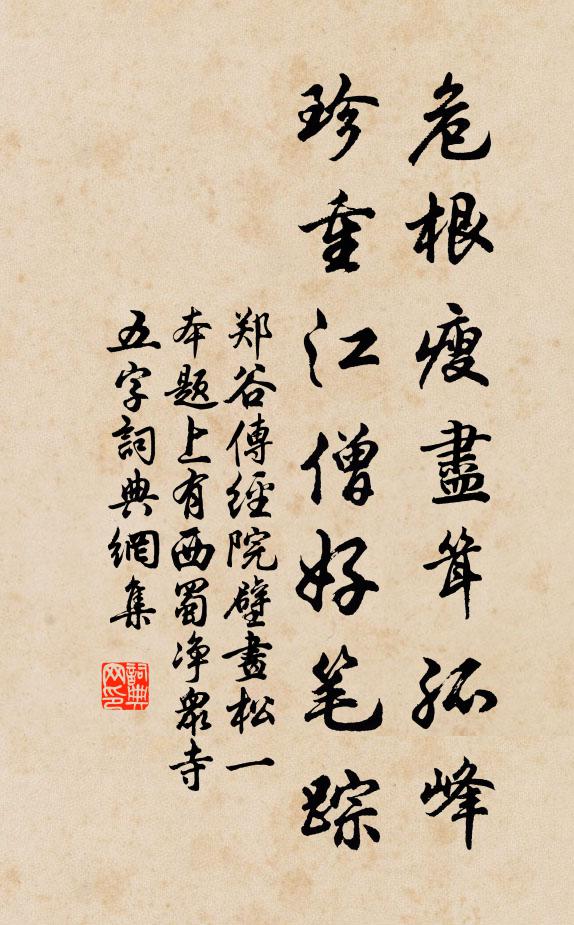 危根瘦盡聳孤峰
珍重江僧好笔踪
郑谷傳經院壁畫松一
本題上有西蜀净衆寺
五字詞典網集
詞典网印